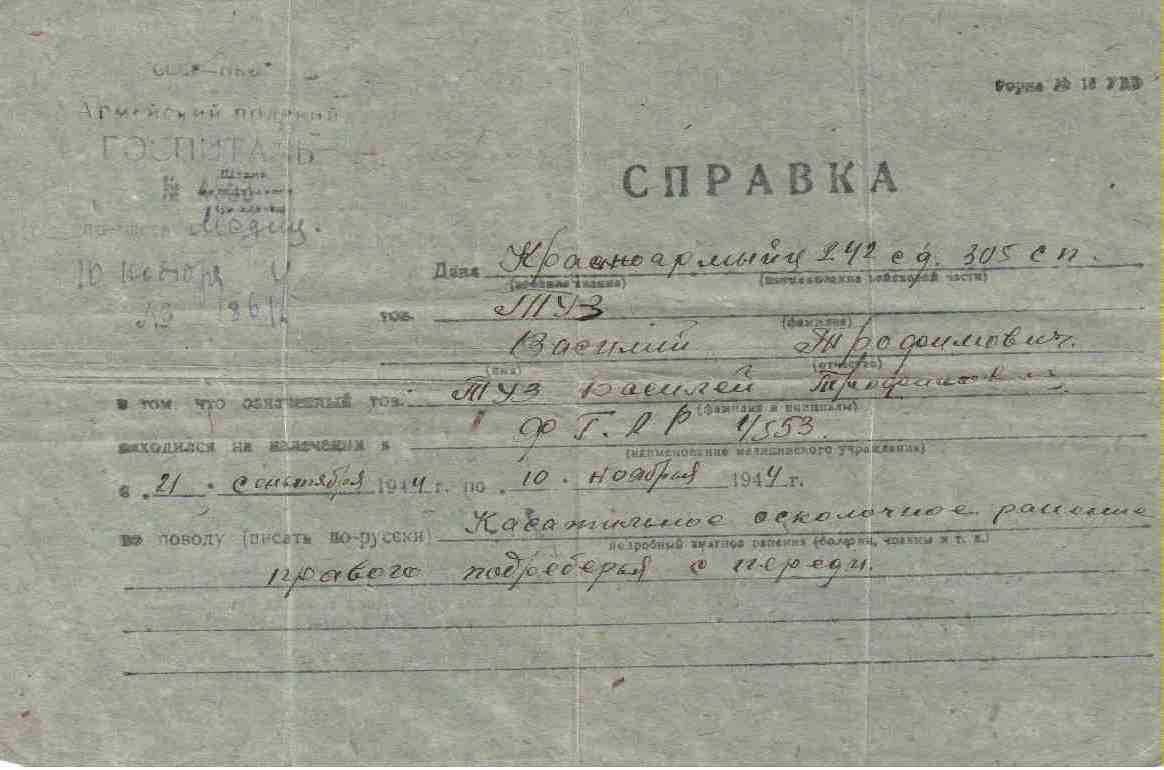 СССР—НКО
Армейский полевой
ГОСПИТАЛЬ
№
Медиц.
10 ноября 4
Форма № 16 УВВ
СПРАВКА
Дана Красноармыйц 242 сд. 305 сп.
(военное звание) (наименование войсковой части)
тов. ТУЗ
(фамилия)
Василий Трофимович.
(имя) (отчество)
в том что означенный тов. ТУЗ Василей
(фамилия и инициалы)
находился на излечении в ФГ.ЛР 1/553.
(наименование медицинского учреждения)
с 21 . сентября 1944 г. по 10 . ноября 1944 г.
по поводу (писать по-русски) Касатильное осколочное ранение
подробный диагноз ранения (болезни, травмы и т. п.)
правого подреберья с переди.